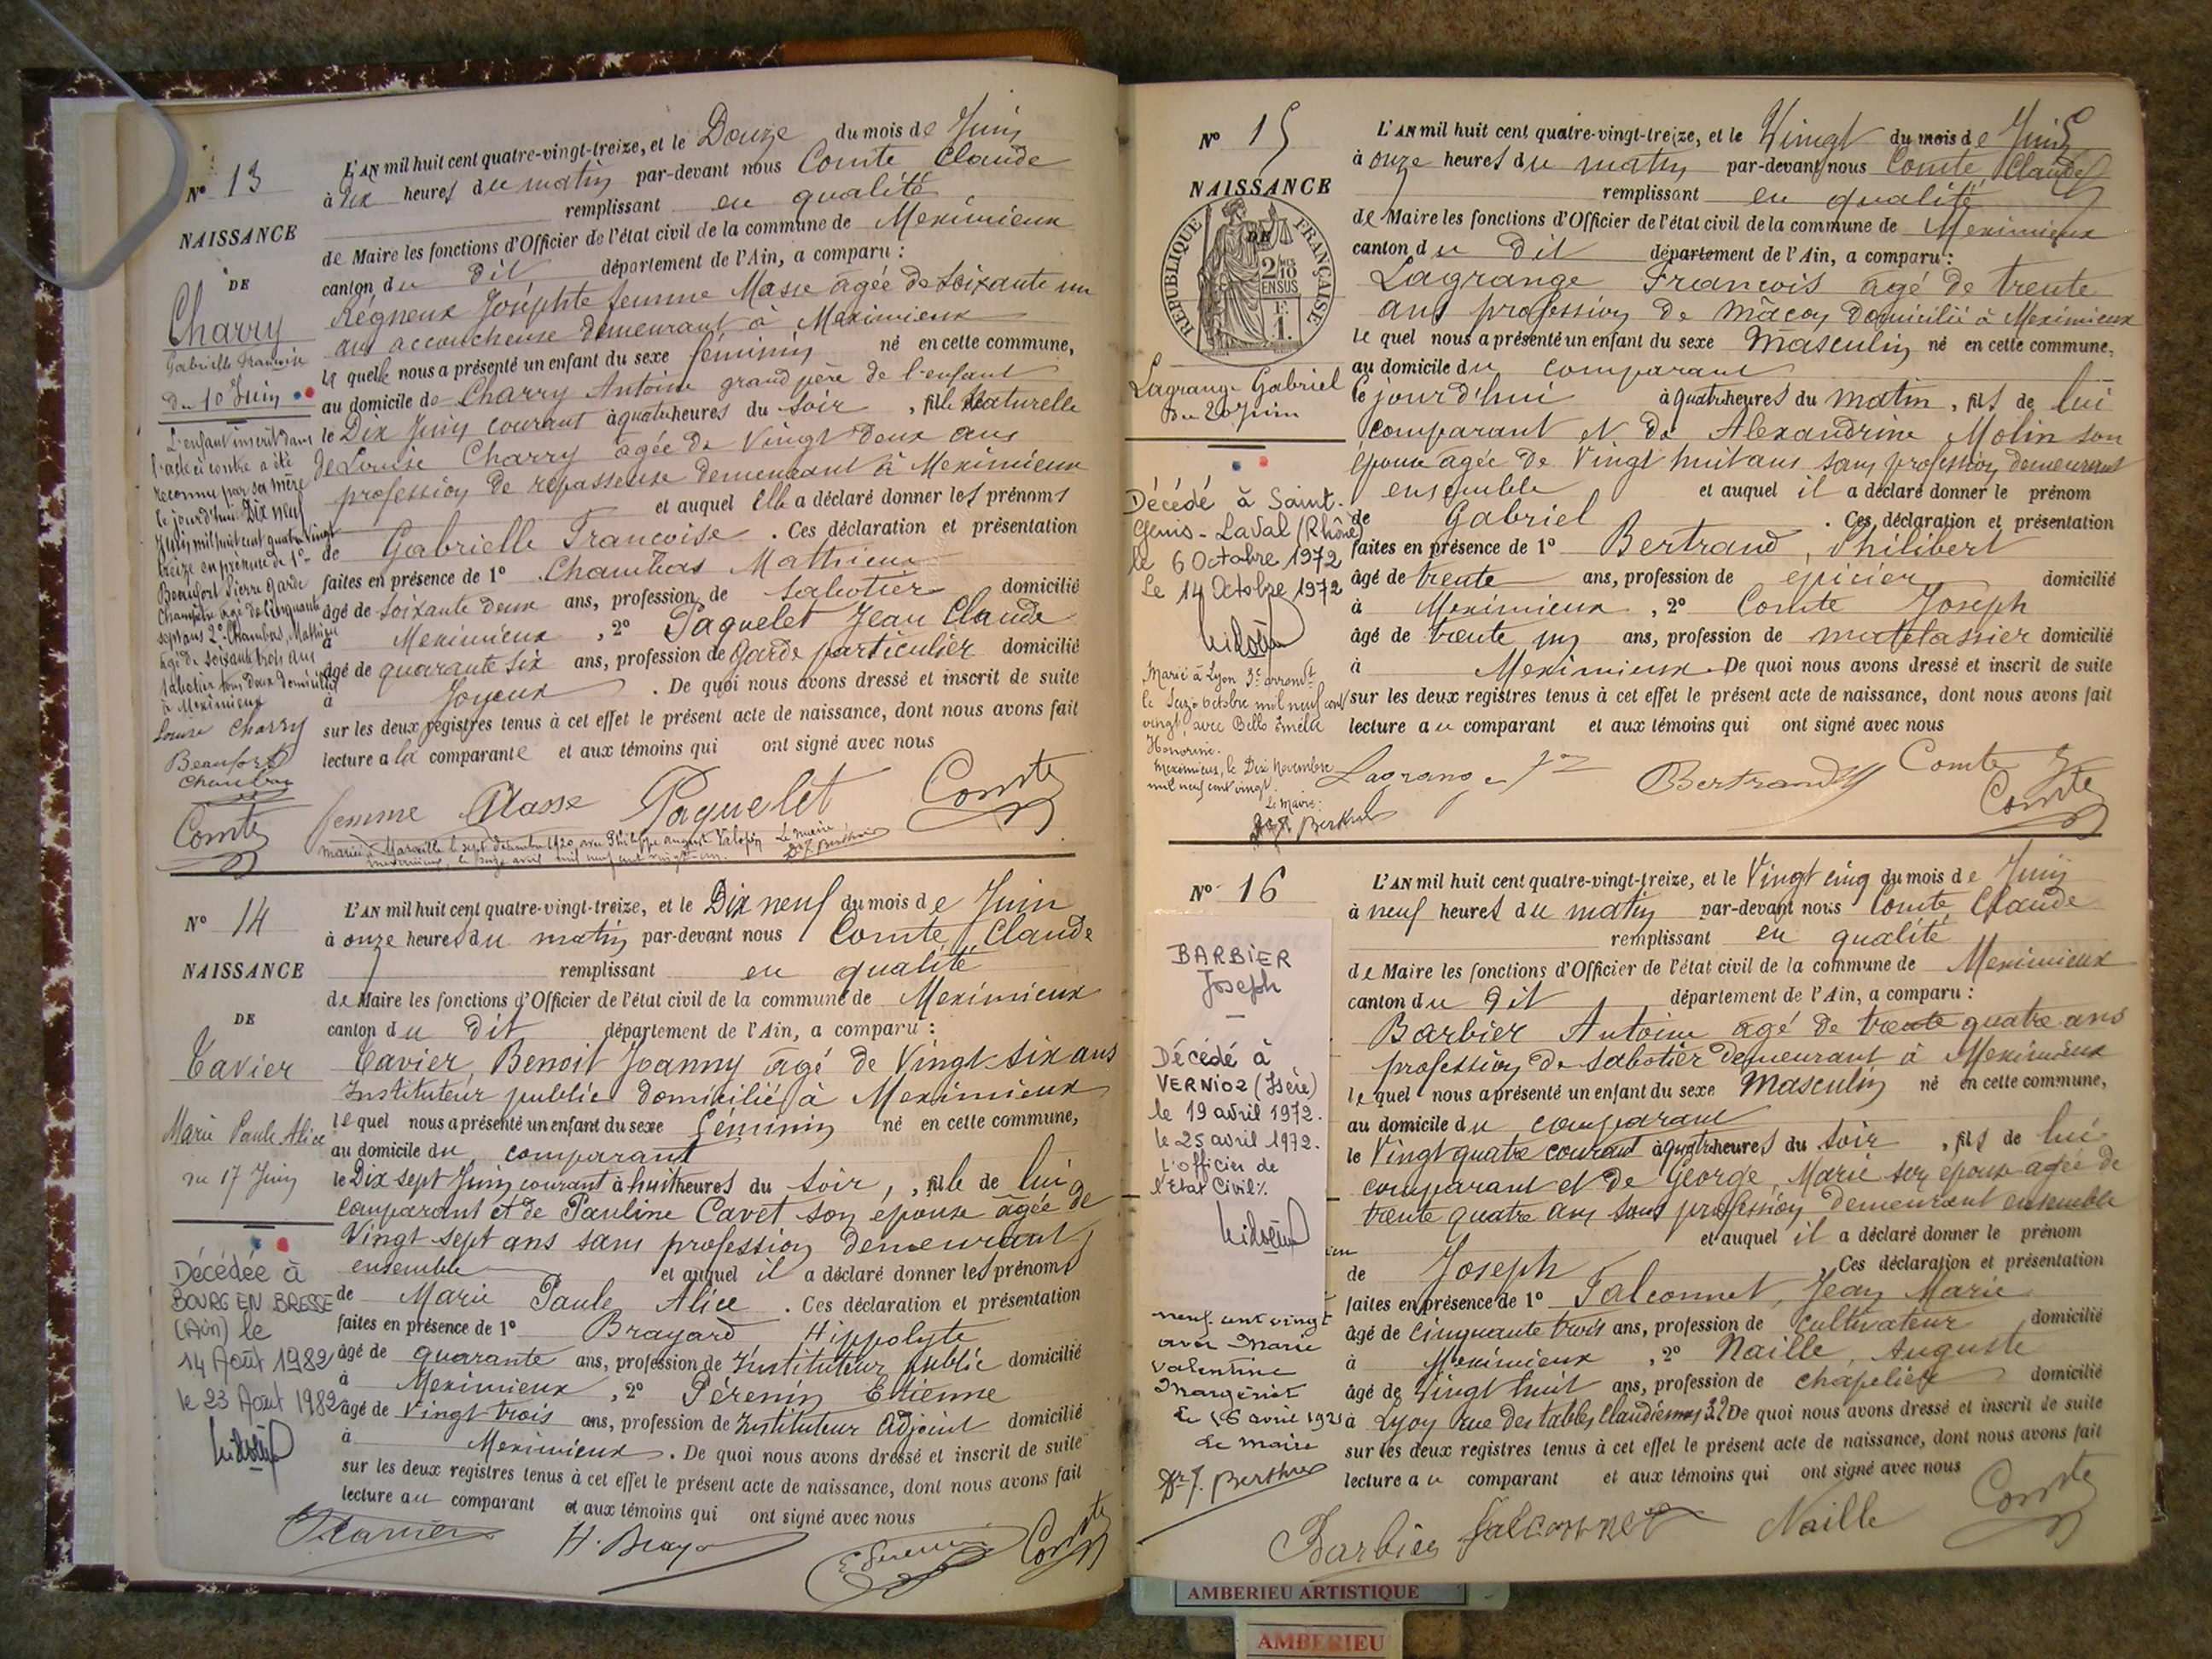 N° 13
NAISSANCE
DE
Charry
Gabrielle Francoise
du 10 Juin
L'enfant inscrit dans
l'acte ci contre a été
reconnu par sa mère
le jourd'hui Dix neuf
Juin mil huit cent quatre vingt
treize en présence de 1°
Beaufort Pierre Garde
Champêtre âgé de Cinquante
sept ans 2° Chambas, Mathieu
âgé de soixante trois ans
sabotier tous deux domiciliés
à Meximieux
Louise Charry
Beaufort
Chambas
Comte
L'AN mil huit cent quatre-vingt-treize, et le Douze du mois de Juin
à dix heures du matin par-devant nous Comte Claude
remplissant en qualité
de Maire les fonctions d'Officier de l'état civil de la commune de Meximieux
canton du dit département de l'Ain, a comparu :
Régneux Joséphte femme Masse âgée de Soixante un
ans accoucheuse demeurant à Meximieux
laquelle nous a présenté un enfant du sexe féminin né en cette commune,
au domicile de Charry Antoine grand père de l'enfant
le Dix Juin courant à quatre heures du soir, fille Naturelle
de Louise Charry âgée de Vingt deux ans
profession de repasseuse demeurant à Meximieux
et auquel Elle a déclaré donner les prénoms
de Gabrielle Francoise. Ces déclaration et présentation
faites en présence de 1° Chambas Mathieu
âgé de soixante deux ans, profession de sabotier domicilié
à Meximieux, 2° Paquelet Jean Claude
âgé de quarante six ans, profession de Garde particulier domicilié
à Joyeux. De quoi nous avons dressé et inscrit de suite
sur les deux registres tenus à cet effet le présent acte de naissance, dont nous avons fait
lecture a la comparante et aux témoins qui ont signé avec nous
femme Masse Paquelet Comte
mariée à Marseille le sept décembre 1920, avec Philippe august Le maire
meximieux, le seize avril mil neuf cent vingt un. Dr J. Berthier
N° 14
NAISSANCE
DE
Tavier
Marie Paule Alice
du 17 Juin
Décédée à
BOURG EN BRESSE
(Ain) le
14 Août 1982
le 23 Août 1982
L'AN mil huit cent quatre-vingt-treize, et le Dix neuf du mois de Juin
à onze heures du matin par-devant nous Comte, Claude
remplissant en qualité
de Maire les fonctions d'Officier de l'état civil de la commune de Meximieux
canton du dit département de l'Ain, a comparu :
Tavier, Benoit Joanny âgé de Vingt-six ans
Instituteur public domicilié à Meximieux
lequel nous a présenté un enfant du sexe féminin né en cette commune,
au domicile du comparant
le Dix sept Juin courant à huit heures du soir, fille de lui
comparant et de Pauline Cavet son épouse âgée de
Vingt sept ans sans profession demeurant
ensemble et auquel il a déclaré donner les prénoms
de Marie Paule Alice. Ces déclaration et présentation
faites en présence de 1° Brayard Hippolyte
âgé de quarante ans, profession de Instituteur public domicilié
à Meximieux, 2° Pérenin Etienne
âgé de Vingt trois ans, profession de Instituteur Adjoint domicilié
à Meximieux. De quoi nous avons dressé et inscrit de suite
sur les deux registres tenus à cet effet le présent acte de naissance, dont nous avons fait
lecture au comparant et aux témoins qui ont signé avec nous
Tavier H. Braya Comte
N° 15
NAISSANCE
DE
RÉPUBLIQUE FRANÇAISE
2/10 EN SUS
1 F.
Lagrange Gabriel
Du 20 Juin
Décédé à Saint-
Genis-Laval (Rhône)
le 6 Octobre 1972
Le 14 Octobre 1972
Marié à Lyon 3e arrondt
le Seize octobre mil neuf cent
vingt, avec Bello Amélie
Honorine.
Meximieux, le Dix Novembre
mil neuf cent vingt.
Le Maire:
Dr J. Berthier
L'AN mil huit cent quatre-vingt-treize, et le Vingt du mois de Juin
à onze heures du matin par-devant nous Comte, Claude
remplissant en qualité
de Maire les fonctions d'Officier de l'état civil de la commune de Meximieux
canton du Dit département de l'Ain, a comparu :
Lagrange Francois âgé de trente
ans profession de mâcon domicilié à Meximieux
lequel nous a présenté un enfant du sexe Masculin né en cette commune,
au domicile du comparant
le jourd'hui à quatre heures du matin, fils de lui
comparant et de Alexandrine Molin son
épouse âgée de Vingt huit ans sans profession demeurant
ensemble et auquel il a déclaré donner le prénom
de Gabriel. Ces déclaration et présentation
faites en présence de 1° Bertrand, Philibert
âgé de trente ans, profession de épicier domicilié
à Meximieux, 2° Comte Joseph
âgé de trente un ans, profession de matelassier domicilié
à Meximieux De quoi nous avons dressé et inscrit de suite
sur les deux registres tenus à cet effet le présent acte de naissance, dont nous avons fait
lecture au comparant et aux témoins qui ont signé avec nous
Lagrange Bertrand Comte J
Comte
N° 16
BARBIER
Joseph
Décédé à
VERNIOZ (Isère)
le 19 avril 1972.
le 25 avril 1972.
L'officier de
l'Etat Civil
neuf cent vingt
avec Marie
Valentine
Margériat
Le 16 avril 1921
Le maire
Dr J. Berthier
L'AN mil huit cent quatre-vingt-treize, et le Vingt cinq du mois de Juin
à neuf heures du matin par-devant nous Comte, Claude
remplissant en qualité
de Maire les fonctions d'Officier de l'état civil de la commune de Meximieux
canton du dit département de l'Ain, a comparu :
Barbier Antoine âgé de trente quatre ans
profession de sabotier demeurant à Meximieux
lequel nous a présenté un enfant du sexe Masculin né en cette commune,
au domicile du comparant
le Vingt quatre courant à quatre heures du soir, fils de lui
comparant et de George, Marie son épouse âgée de
trente quatre ans sans profession demeurant ensemble
et auquel il a déclaré donner le prénom
de Joseph. Ces déclaration et présentation
faites en présence de 1° Falconnet, Jean Marie
âgé de Cinquante trois ans, profession de cultivateur domicilié
à Meximieux, 2° Naille, Auguste
âgé de Vingt huit ans, profession de chapelier domicilié
à Lyon rue des tables Claudiennes 32 De quoi nous avons dressé et inscrit de suite
sur les deux registres tenus à cet effet le présent acte de naissance, dont nous avons fait
lecture au comparant et aux témoins qui ont signé avec nous
Barbier falconnet Naille Comte
AMBERIEU ARTISTIQUE
AMBERIEU